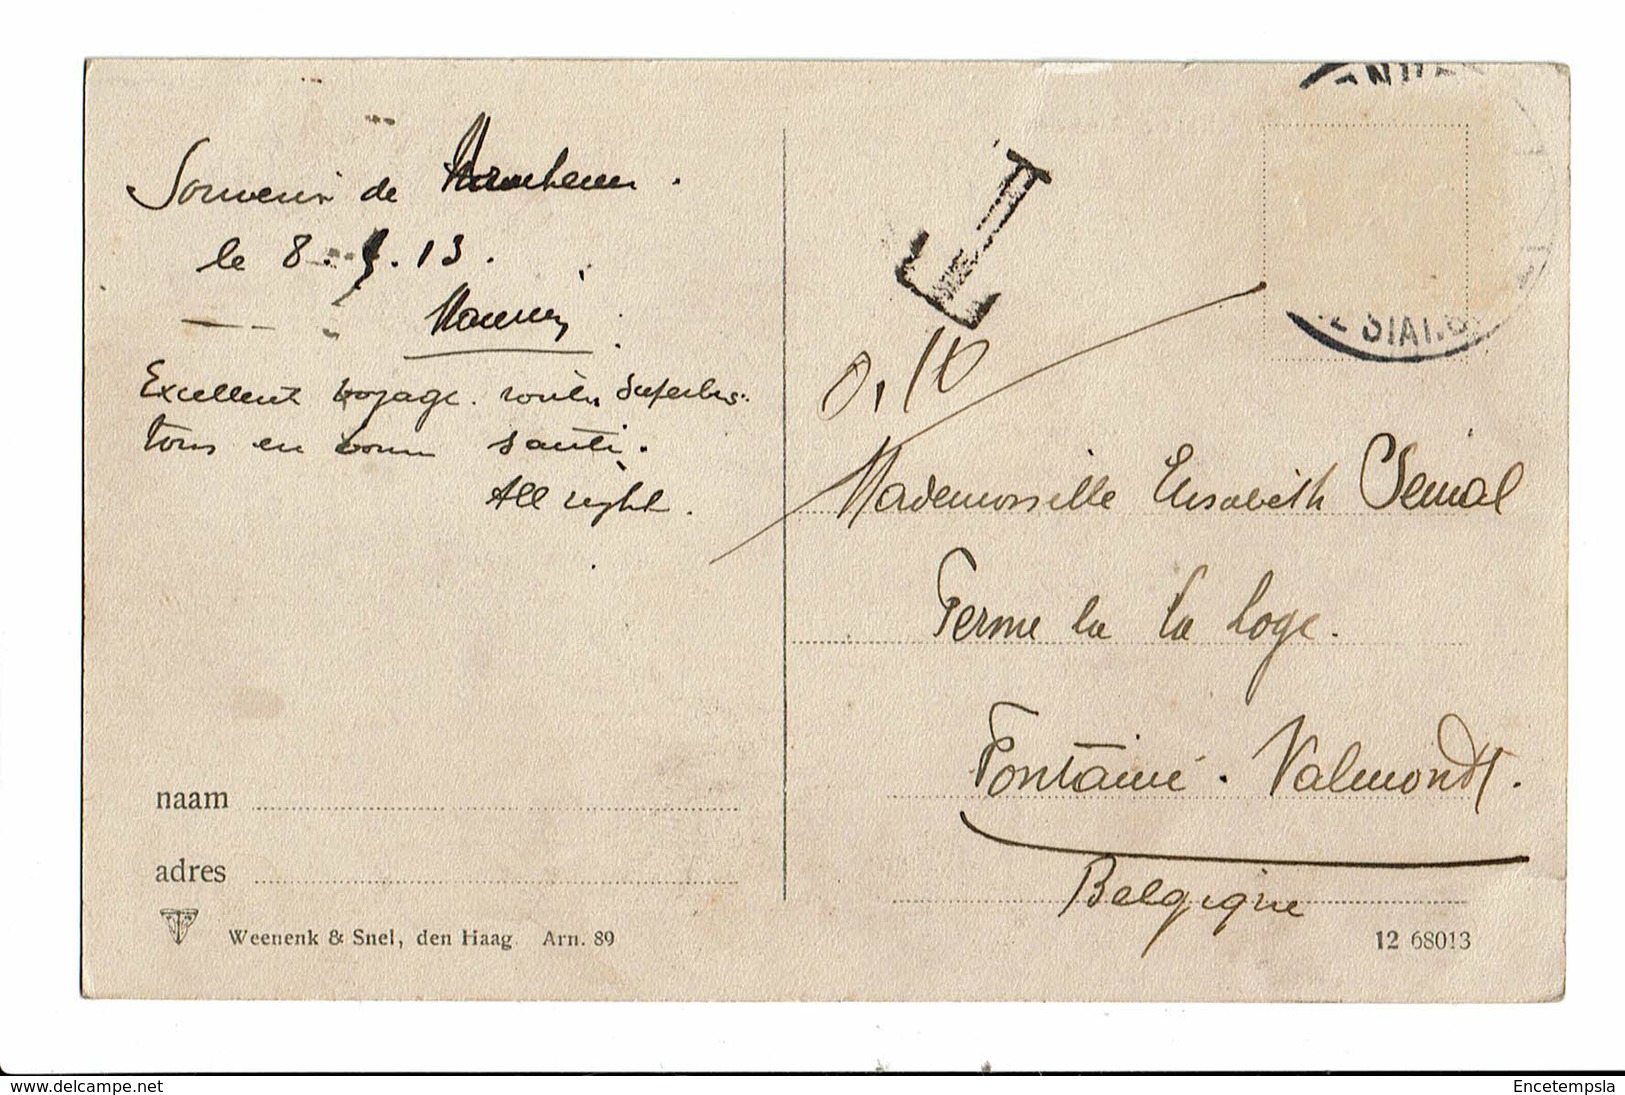 Souvenir de
le 8. . 13.
Excellent voyage. routes superbes.
tous en bonne santé.
All right.
naam
adres
Weenenk & Snel, den Haag Arn. 89
T
0,10
Mademoiselle Elisabeth
Ferme la la Loge.
Fontaine. Valmondt.
Belgique
12 68013
www.delcampe.net
Encetempsla